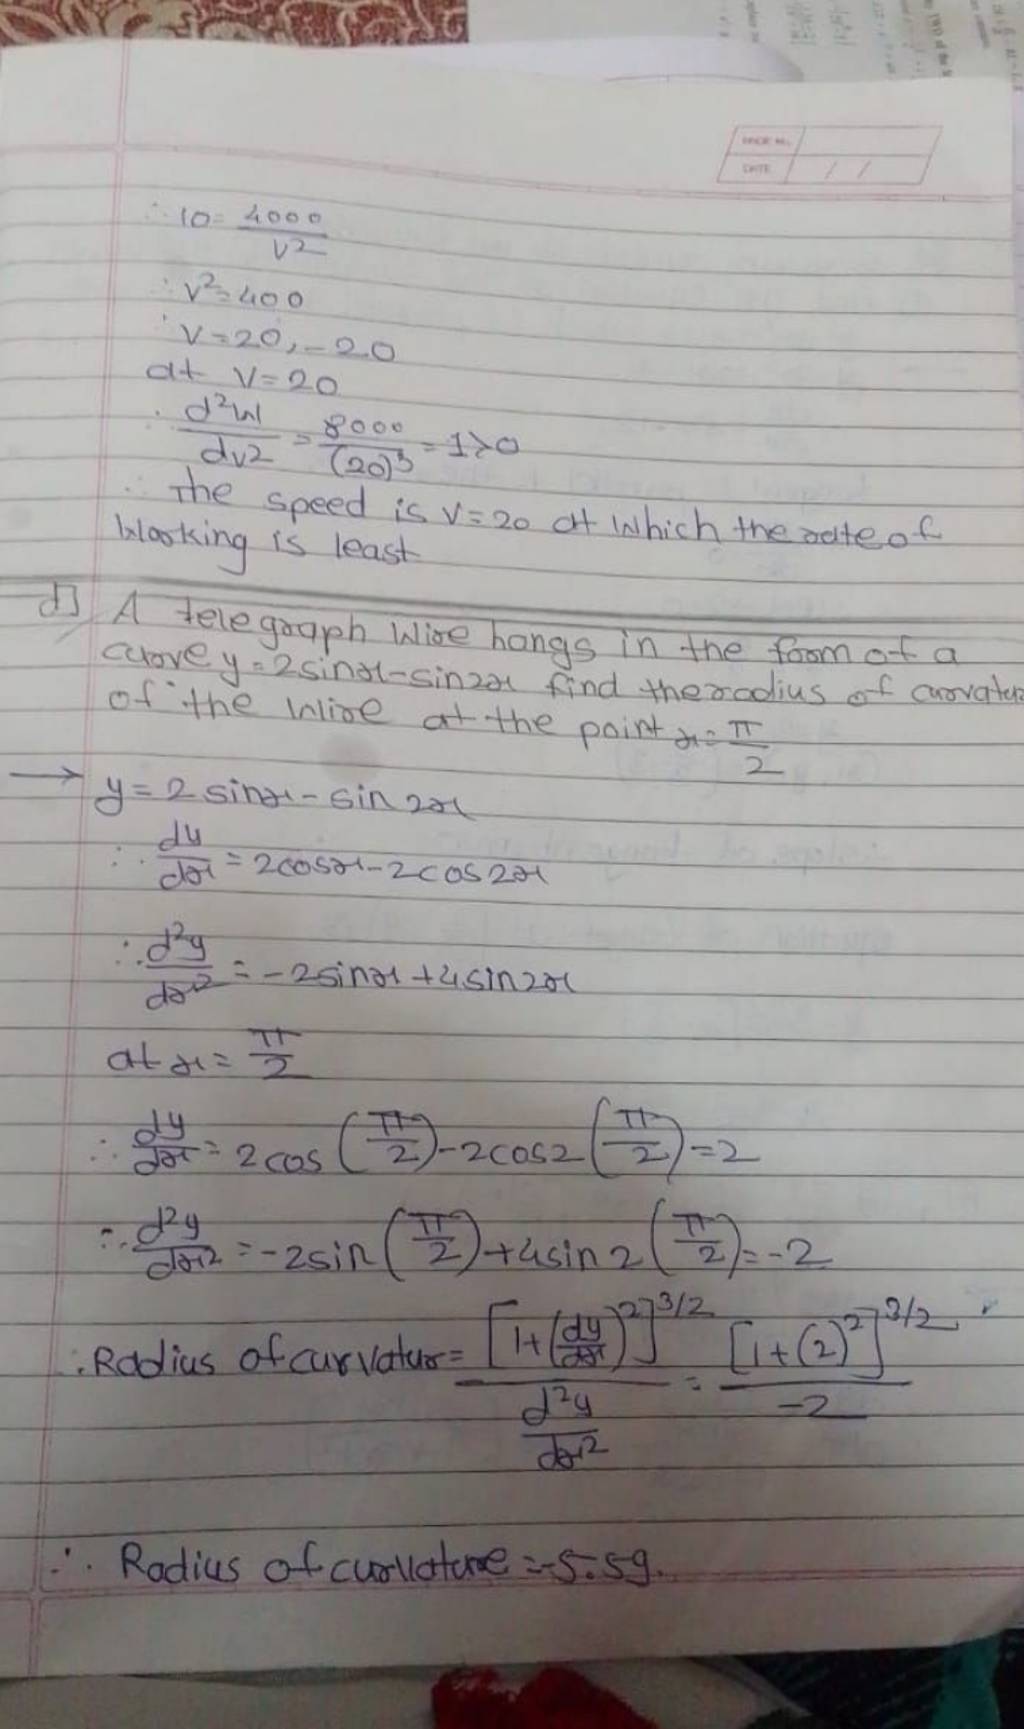 PAGE No.
DATE / /
∴ 10 = 4000/v²
∴ v² = 400
∴ v = 20, -20
at v = 20
∴ d²W/dv² = 8000/(20)³ = 1 > 0
∴ The speed is v = 20 at which the rate of
working is least
d] A telegraph wire hangs in the form of a
curve y = 2sinx - sin2x find the radius of curvatu
of the wire at the point x = π/2
→ y = 2sinx - sin2x
∴ dy/dx = 2cosx - 2cos2x
∴ d²y/dx² = -2sinx + 4sin2x
at x = π/2
∴ dy/dx = 2cos(π/2) - 2cos2(π/2) = 2
∴ d²y/dx² = -2sin(π/2) + 4sin2(π/2) = -2
∴ Radius of curvatur = [1+(dy/dx)²]^3/2 / d²y/dx² = [1+(2)²]^3/2 / -2
∴ Radius of curvature = -5.59.